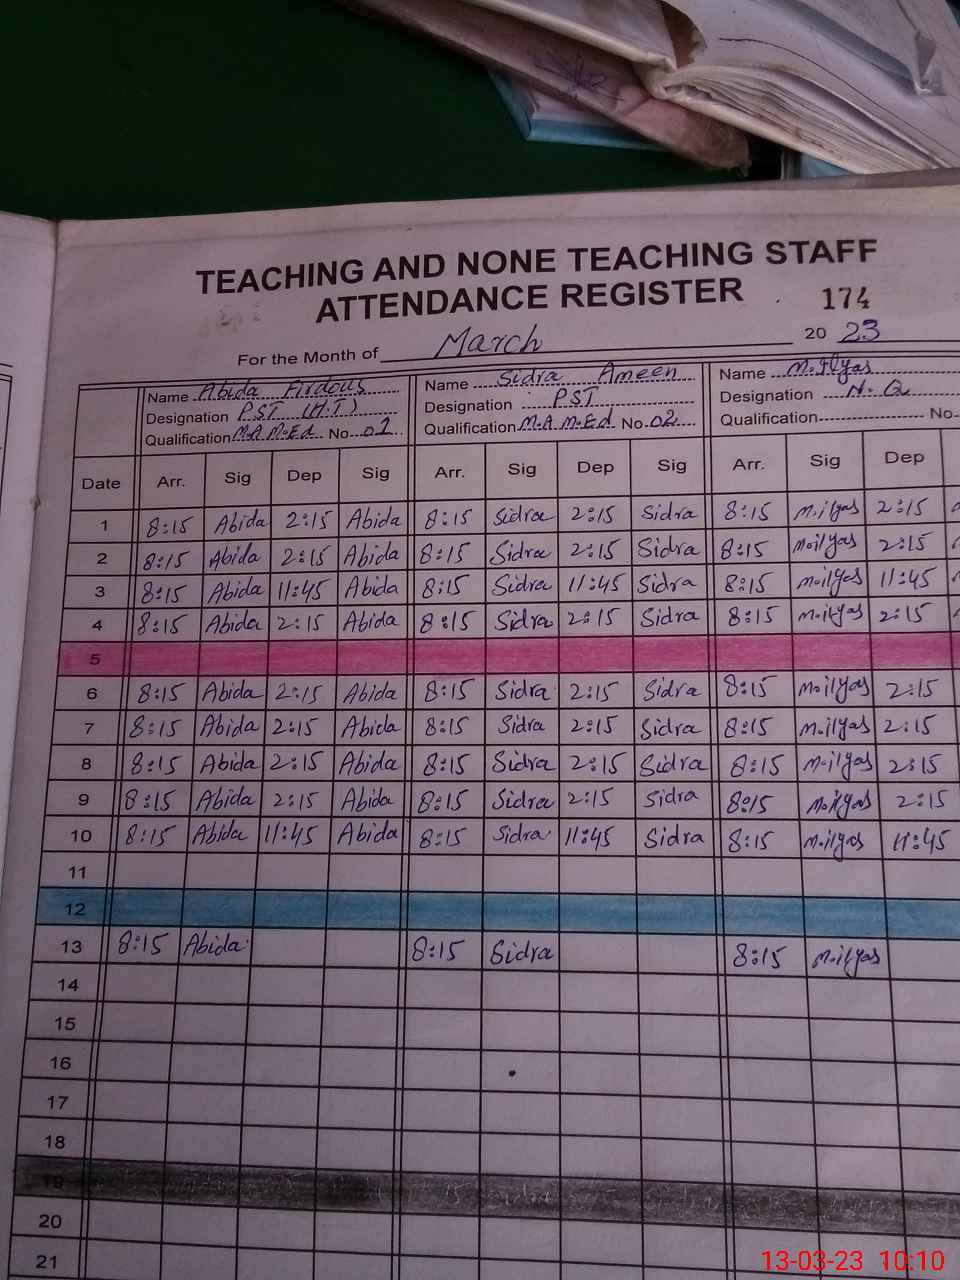 TEACHING AND NONE TEACHING STAFF
ATTENDANCE REGISTER 174
For the Month of March 20 23
Name Abida Firdous Name Sidra Ameen Name M.Ilyas
Designation PST (H.T) Designation PST Designation N.Q
Qualification M.A M.Ed No. 01 Qualification M.A M.Ed No. 02 Qualification No
Date Arr. Sig Dep Sig Arr. Sig Dep Sig Arr. Sig Dep
1 8:15 Abida 2:15 Abida 8:15 Sidra 2:15 Sidra 8:15 M.ilyas 2:15
2 8:15 Abida 2:15 Abida 8:15 Sidra 2:15 Sidra 8:15 M.ilyas 2:15
3 8:15 Abida 11:45 Abida 8:15 Sidra 11:45 Sidra 8:15 M.ilyas 11:45
4 8:15 Abida 2:15 Abida 8:15 Sidra 2:15 Sidra 8:15 M.ilyas 2:15
5
6 8:15 Abida 2:15 Abida 8:15 Sidra 2:15 Sidra 8:15 M.ilyas 2:15
7 8:15 Abida 2:15 Abida 8:15 Sidra 2:15 Sidra 8:15 M.ilyas 2:15
8 8:15 Abida 2:15 Abida 8:15 Sidra 2:15 Sidra 8:15 M.ilyas 2:15
9 8:15 Abida 2:15 Abida 8:15 Sidra 2:15 Sidra 8:15 M.ilyas 2:15
10 8:15 Abida 11:45 Abida 8:15 Sidra 11:45 Sidra 8:15 M.ilyas 11:45
11
12
13 8:15 Abida 8:15 Sidra 8:15 M.ilyas
14
15
16
17
18
19
20
21
13-03-23 10:10